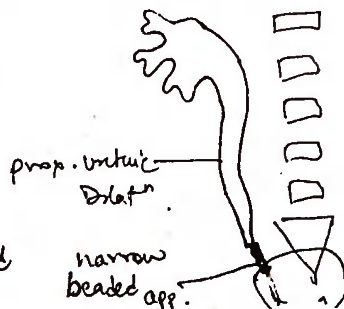 prop. ureteric
Dilatⁿ
narrow
beaded app.